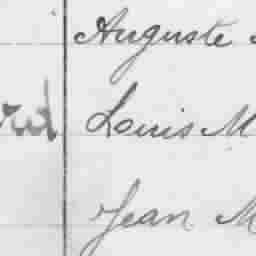 Auguste
Louis M
Jean M